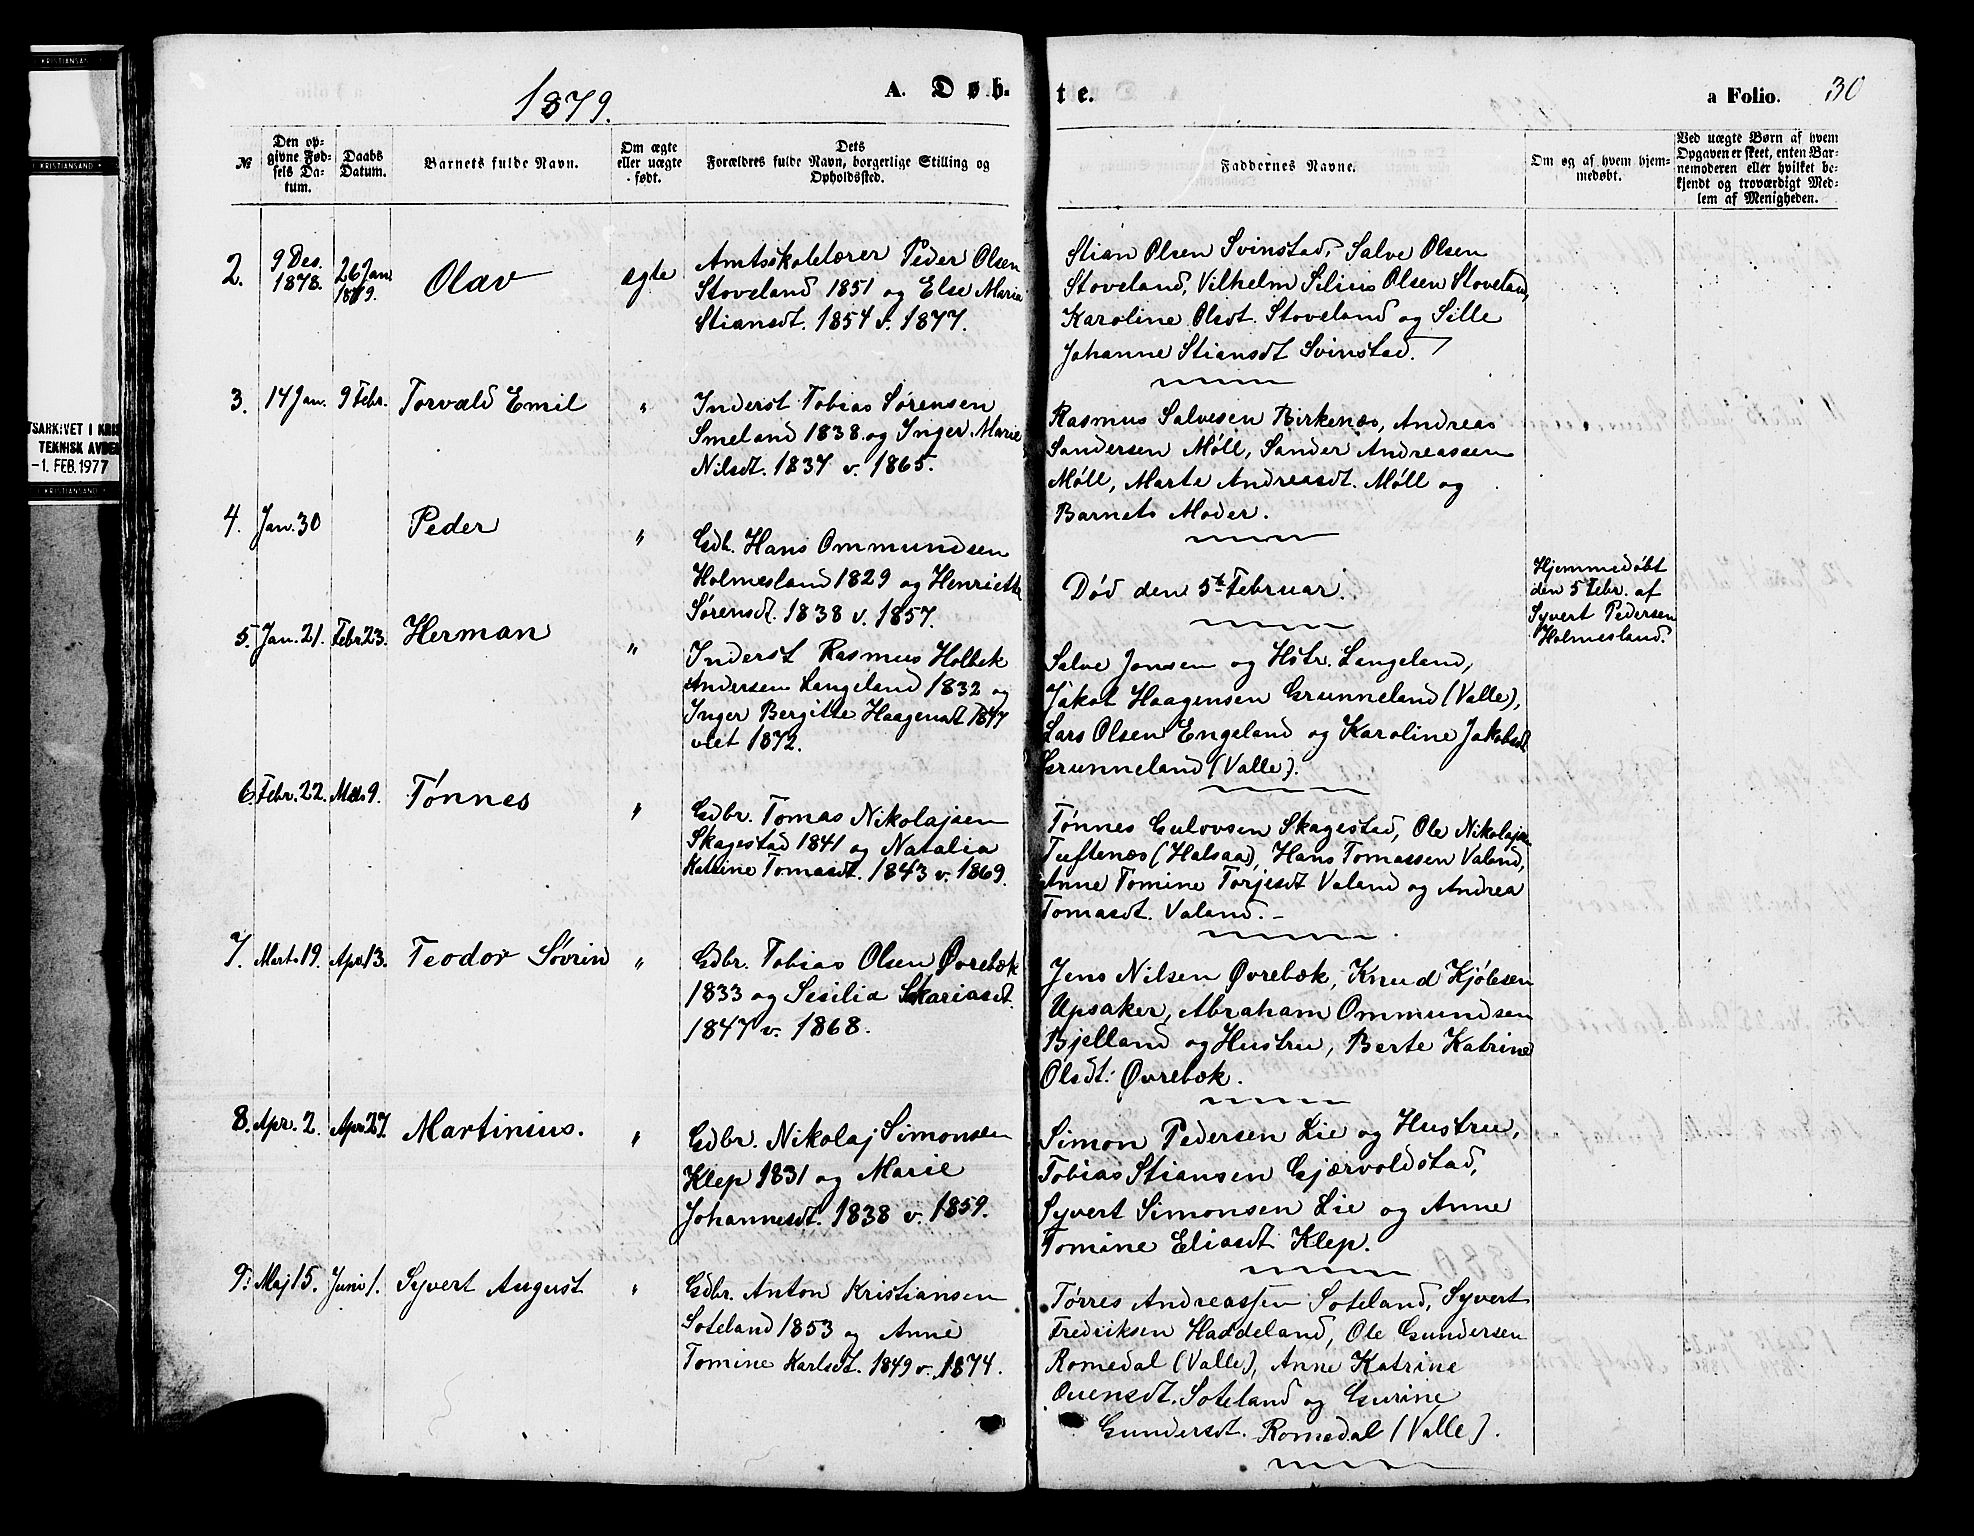 KRISTIANSAND
KRISTIANSAND
TSARKIVET I KRIS
TEKNISK AVDE
-1. FEB. 1977
KRISTIANSAND
1879.
A. Døb-
te.
a Folio. 30
№
Den op-
givne Fød-
sels Da-
tum.
Daabs
Datum.
Barnets fulde Navn.
Om ægte
eller uægte
født.
Dets
Forældres fulde Navn, borgerlige Stilling og
Opholdssted.
Faddernes Navne.
Om og af hvem hjem-
medøbt.
Ved uægte Børn af hvem
Opgaven er skeet, enten Bar-
nemoderen eller hvilket be-
kjendt og troværdigt Med-
lem af Menigheden.
2. 9 Des. 1878. 26 Jan 1879. Olav ægte
Amtsskolelærer Peder Olsen
Stoveland 1851 og Else Maria
Stiansdt. 1854 v. 1877.
Stian Olsen Svinstad, Salve Olsen
Stoveland, Vilhelm Silius Olsen Stoveland,
Karoline Olsdt. Stoveland og Sille
Johanne Stiansdt Svinstad.
3. 14 Jan. 9 Febr. Torvald Emil "
Inderst Tobias Sørensen
Smeland 1838 og Inger Marie
Nilsdt. 1837 v. 1865.
Rasmus Salvesen Birkenæs, Andreas
Sandersen Móll, Sander Andreassen
Móll, Marte Andreasdt. Móll og
Barnets Moder.
4. Jan. 30 Peder "
Gdb. Hans Ommundsen
Holmesland 1829 og Henriette
Sørensdt. 1838 v. 1857.
Dód den 5te Februar.
Hjemmedøbt
den 5 Febr. af
Syvert Pedersen
Holmesland.
5. Jan. 21. Febr 23. Herman "
Inderst Rasmus Holbek
Andersen Langeland 1832 og
Inger Bergitte Haagensdt 1847
viet 1872.
Salve Jonsen og Hstr. Langeland,
Jakob Haagensen Grunneland (Valle),
Lars Olsen Engeland og Karoline Jakobsdt
Grunneland (Valle).
6. Febr. 22. Mts 9. Tónnes "
Gdbr. Tomas Nikolajsen
Skagestad 1841 og Natalia
Katrine Tomasdt. 1843 v. 1869.
Tónnes Gulovsen Skagestad, Ole Nikolajsen
Tuftenæs (Halsaa), Hans Tomassen Valand,
Anne Tomine Torjesdt Valand og Andrea
Tomasdt. Valand. -
7. Mart. 19. Apr 13. Teodor Sóvrin "
Gdbr. Tobias Olsen Øvrebæk
1833 og Sesilia Skariasdt.
1847 v. 1868.
Jens Nilsen Øvrebæk, Knud Kjólesen
Upsaker, Abraham Ommundsen
Bjelland og Hustru, Berte Katrine
Olsdt. Øvrebæk.
8. Apr. 2. Apr 27. Martinius. "
Gdbr. Nikolaj Simonsen
Klep 1831 og Marie
Johannesdt. 1838 v. 1859.
Simon Pedersen Lie og Hustru,
Tobias Stiansen Gjærvoldstad,
Syvert Simonsen Lie og Anne
Tomine Eliasdt Klep.
9. Maj 15. Juni 1. Syvert August "
Gdbr. Anton Kristiansen
Soteland 1853 og Anne
Tomine Karlsdt. 1849 v. 1874.
Tórres Andreassen Soteland, Syvert
Fredriksen Haddeland, Ole Gundersen
Romedal (Valle), Anne Katrine
Ouensdt. Soteland og Gurine
Gundersdt. Romedal (Valle).